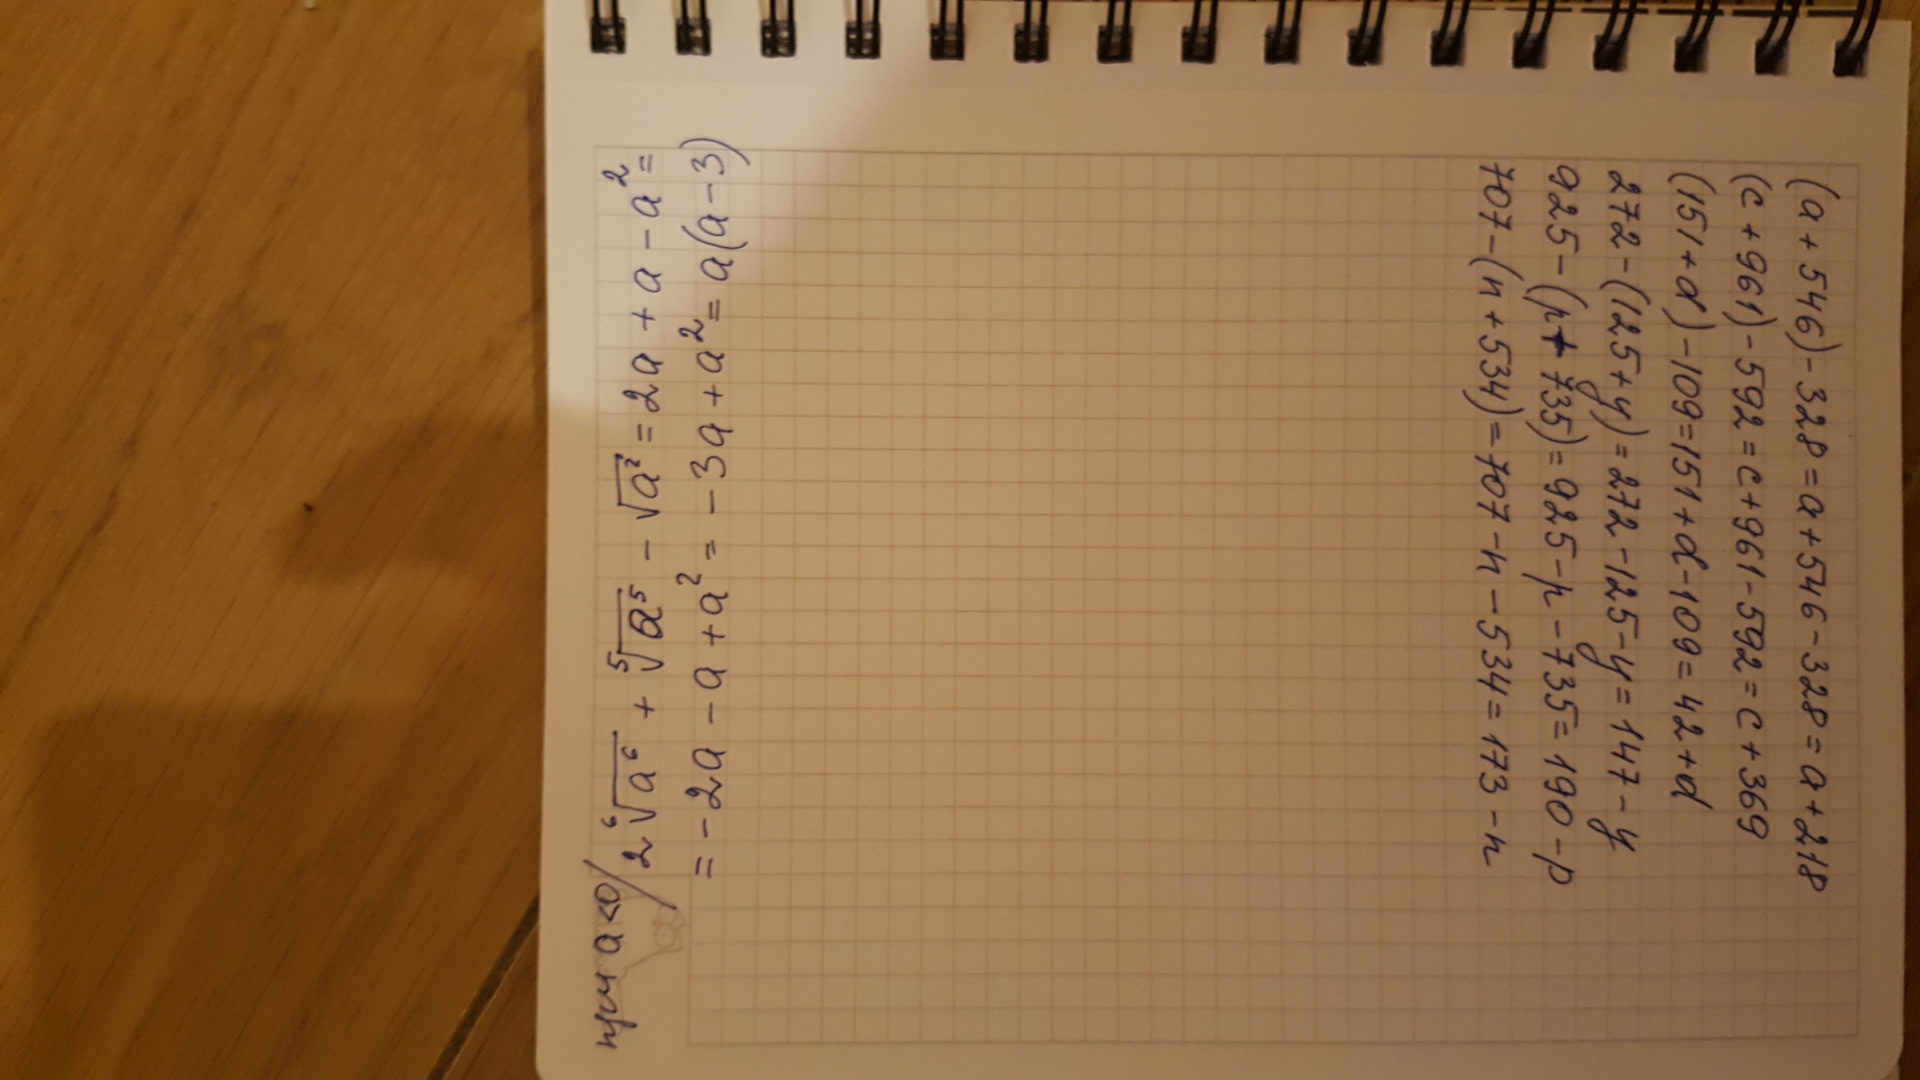 (a+546)-328=a+546-328=a+218
(c+961)-592=c+961-592=c+369
(151+d)-109=151+d-109=42+d
272-(125+y)=272-125-y=147-y
925-(p+735)=925-p-735=190-p
707-(n+534)=707-n-534=173-n
при a>0/ 2⁶√a⁶ + ⁵√a⁵ - √a² = 2a + a - a² =
= -2a - a + a² = -3a + a² = a(a-3)